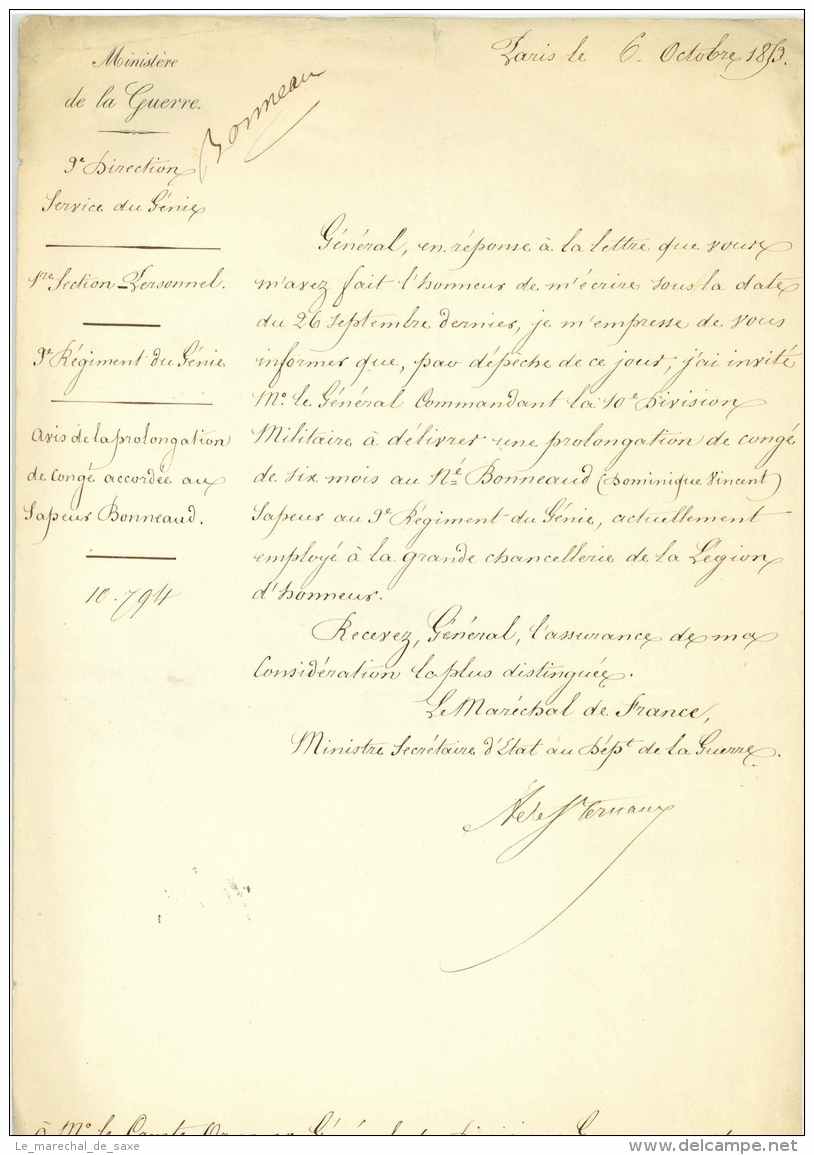 Ministère
de la Guerre.
Paris le 6 Octobre 1853.
Bonneau
9e Direction
Service du Génie
1re Section Personnel.
3e Régiment du Génie
Avis de la prolongation
de Congé accordée au
Sapeur Bonneaud.
10.794
Général, en réponse à la lettre que vous
m'avez fait l'honneur de m'écrire sous la date
du 26 Septembre dernier, je m'empresse de vous
informer que, par dépêche de ce jour, j'ai invité
Mr. le Général Commandant la 10e Division
Militaire à délivrer une prolongation de congé
de six mois au Né Bonneaud (Dominique Vincent)
Sapeur au 3e Régiment du Génie, actuellement
employé à la grande chancellerie de la Légion
d'honneur.
Recevez, Général, l'assurance de ma
Considération la plus distinguée.
Le Maréchal de France,
Ministre Secrétaire d'Etat au Dépt de la Guerre.
A de St Arnaud
à Mr. le Comte
Le_marechal_de_saxe
www.delcampe.net